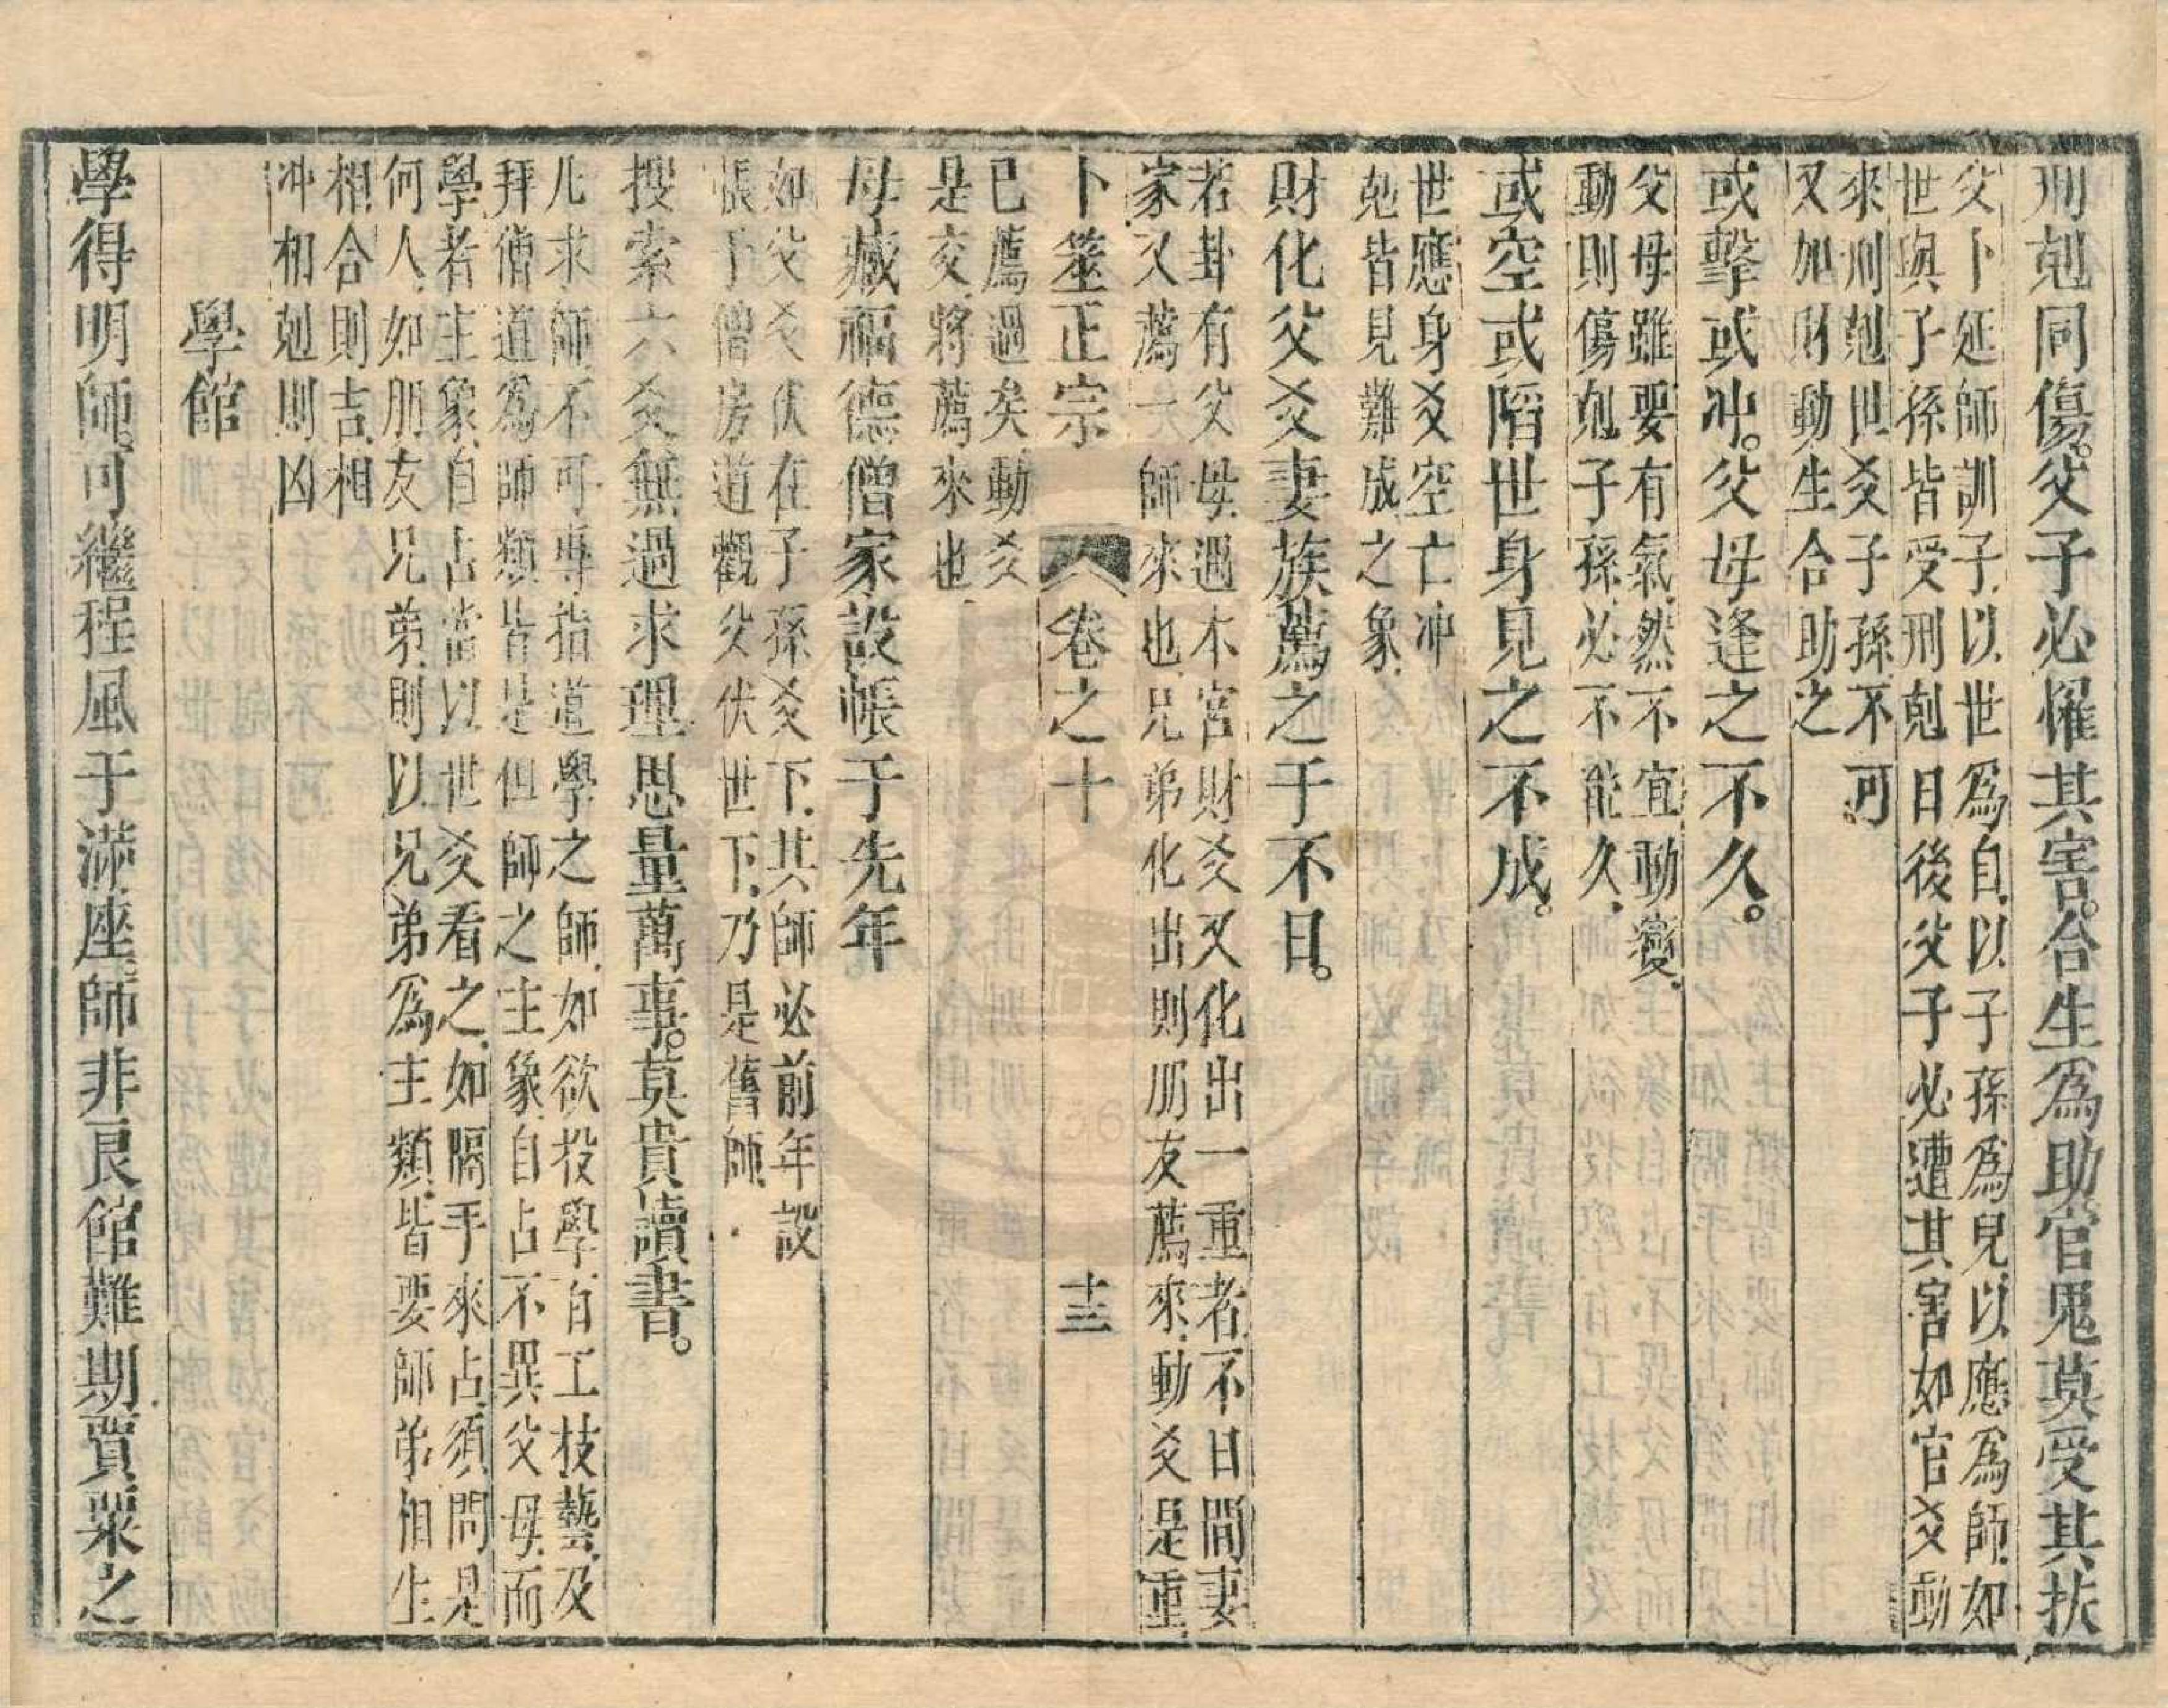 刑剋同傷。父子必懼其害。合生爲助。官鬼莫受其扶
父卜延師訓子。以世爲自。以子孫爲兒。以應爲師。如
世與子孫皆受刑剋。日後父子必遭其害。如官爻動
來刑剋世爻子孫。不可
又加財動生合助之
或擊或冲。父母逢之不久。
父母雖要有氣。然不宜動變。
動則傷剋子孫。必不能久。
或空或陷。世身見之不成。
世應身爻空亡冲
剋皆見難成之象。
財化父爻。妻族薦之于不日。
若卦有父母。遇本宮財爻又化出一重者。不日間妻
家又薦一師來也。兄弟化出。則朋友薦來。動爻是重
卜筮正宗 卷之十 十三
已薦過矣。動爻
是交。將薦來也。
母藏福德。僧家設帳于先年
如父爻伏在子孫爻下。其師必前年設
帳于僧房道觀。父伏世下。乃是舊師。
搜索六爻。無過求理。思量萬事。莫貴讀書。
凡求師不可專指道學之師。如欲投學百工技藝。及
拜僧道爲師。類皆是。但師之主象。自占不異父母。而
學者主象。自占當以世爻看之。如隔手來占。須問是
何人。如朋友兄弟。則以兄弟爲主類。皆要師弟相生
相合則吉。相
冲相剋則凶
學館
學得明師。可繼程風于滿座。師非良館。難期賈粟之